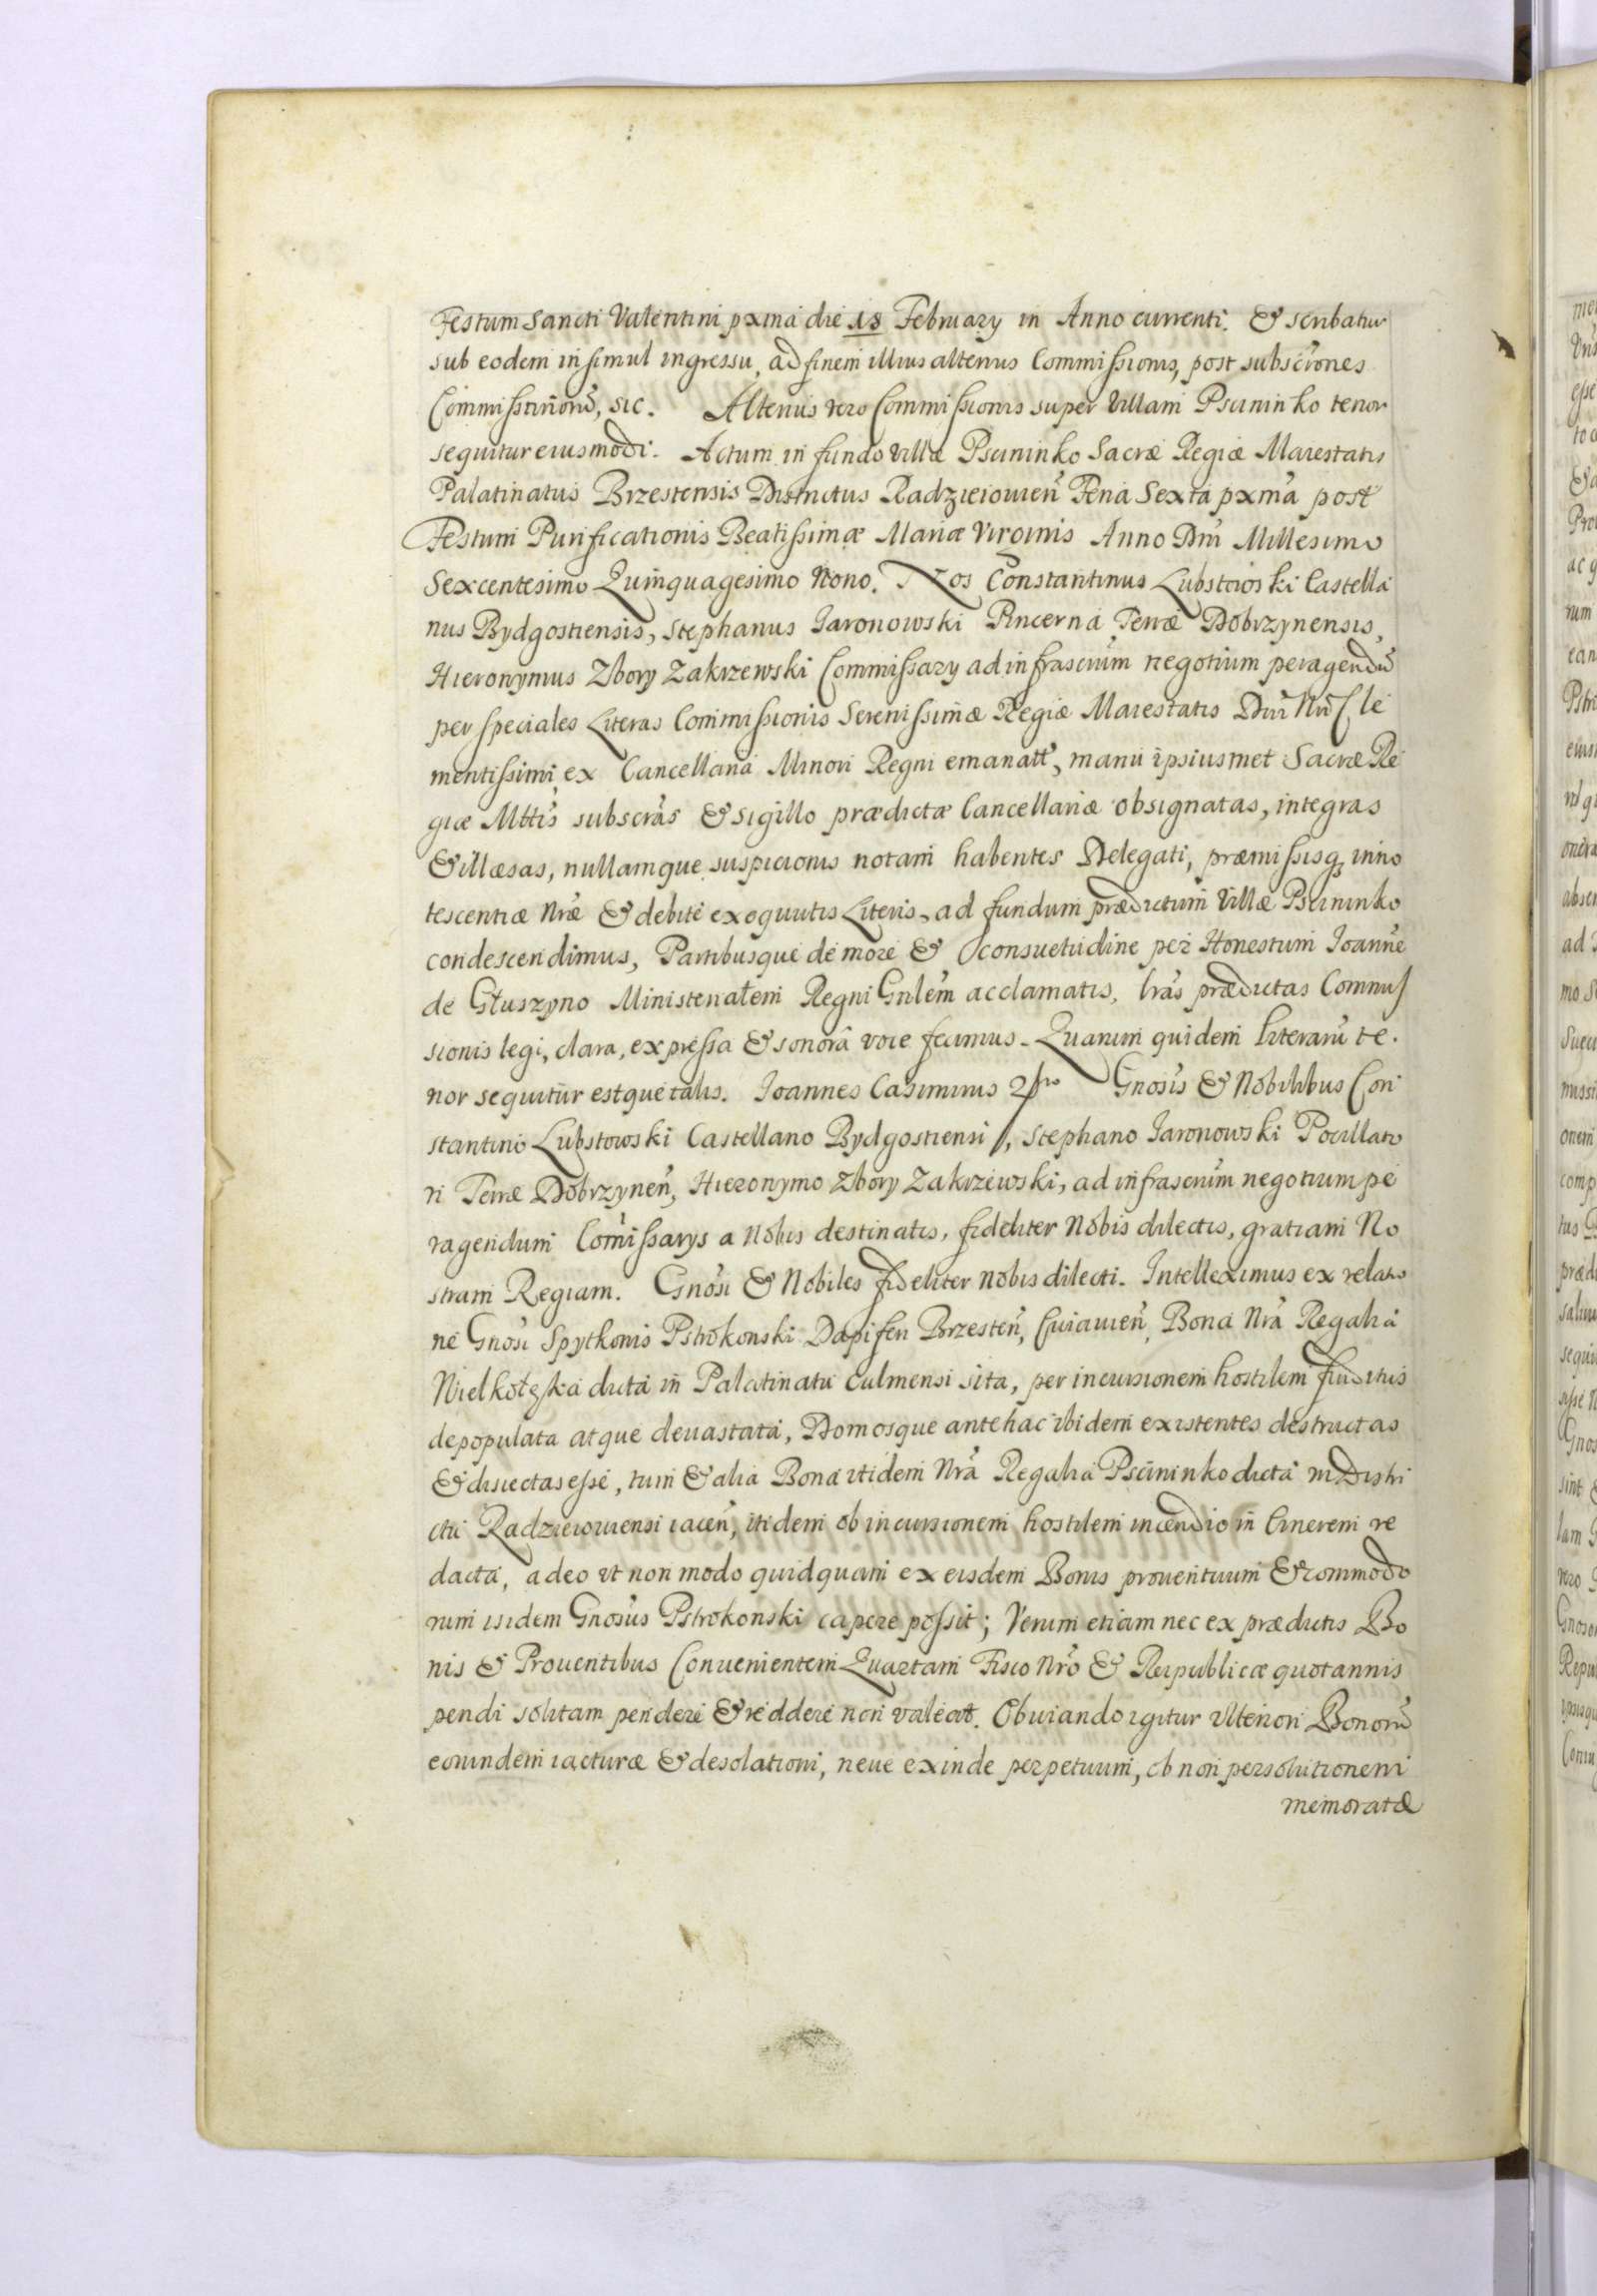 Festum Sancti Valentini pxma die 18 February in Anno currenti. & scribatur
sub eodem insimul ingressu, ad finem illius alterius Commissionis, post subscr̃ones
Commissariorũ, sic. Alterius vero Commissionis super Villam Pscininko tenor
sequitur eiusmodi. Actum in fundo Villæ Pscininko Sacræ Regiæ Maiestatis
Palatinatus Brzestensis Districtus Radzieiouien̄ Feria Sexta pxma post
Festum Purificationis Beatissimæ Mariæ Virginis Anno Dni Millesimo
Sexcentesimo Quinquagesimo Nono. Nos Constantinus Lubstowski Castella
nus Bydgostiensis, Stephanus Jaronowski Pincerna Terræ Dobrzynensis,
Hieronymus Zbory Zakrzewski Commissary ad infrascrum negotium peragendũ
per speciales Literas Commissionis Serenissimæ Regiæ Maiestatis Dni Nri Cle
mentissimi, ex Cancellaria Minori Regni emanatt, manu ipsiusmet Sacræ Re
giæ Mttis subscras & sigillo prædictæ Cancellariæ obsignatas, integras
& illæsas, nullamque suspicionis notam habentes Delegati, præmissisq, inno
tescentiæ Nræ & debite exequutis Literis, ad fundum prædictum Villæ Pscininko
condescendimus, Partibusque de more & consuetudine per Honestum Joanne
de Głuszyno Ministerialem Regni Gnlem acclamatis, lras prædictas Commis
sionis legi, clara, expressa & sonora voce fecimus. Quarum quidem Literarũ te.
nor sequitur estque talis. Joannes Casimirus Gnosis & Nobilibus Con
stantino Lubstowski Castellano Bydgostiensi, Stephano Jaronowski Pocillato
ri Terræ Dobrzynen̄, Hieronymo Zbory Zakrzewski, ad infrascrum negotium pe
ragendum Com̃issarys a Nobis destinatis, fideliter Nobis dilectis, gratiam No
stram Regiam. Gnosi & Nobiles fideliter nobis dilecti. Intelleximus ex relatio
ne Gnosi Spytkonis Pstrokonski Dapiferi Brzesten̄, Cuiauien̄, Bona Nra Regalia
Nielkołęka dicta in Palatinatu Culmensi sita, per incursionem hostilem funditus
depopulata atque deuastata, Domosque antehac ibidem existentes destructas
& disiectas esse, tum & alia Bona itidem Nra Regalia Pscininko dicta in Distri
ctu Radzieiouiensi iacen̄, itidem ob incursionem hostilem incendio in Cinerem re
dacta, adeo ut non modo quidquam ex eisdem Bonis prouentuum & commodo
rum isidem Gnosus Pstrokonski capere possit; Verum etiam nec ex prædictis Bo
nis & Prouentibus Conuenientem Quartam Fisco Nro & Reipublicæ quotannis
pendi solitam pendere & reddere non valeat. Obuiando igitur ulteriori Bonorũ
eorundem iacturæ & desolationi, neue exinde perpetuum, ob non persolutionem
memoratæ